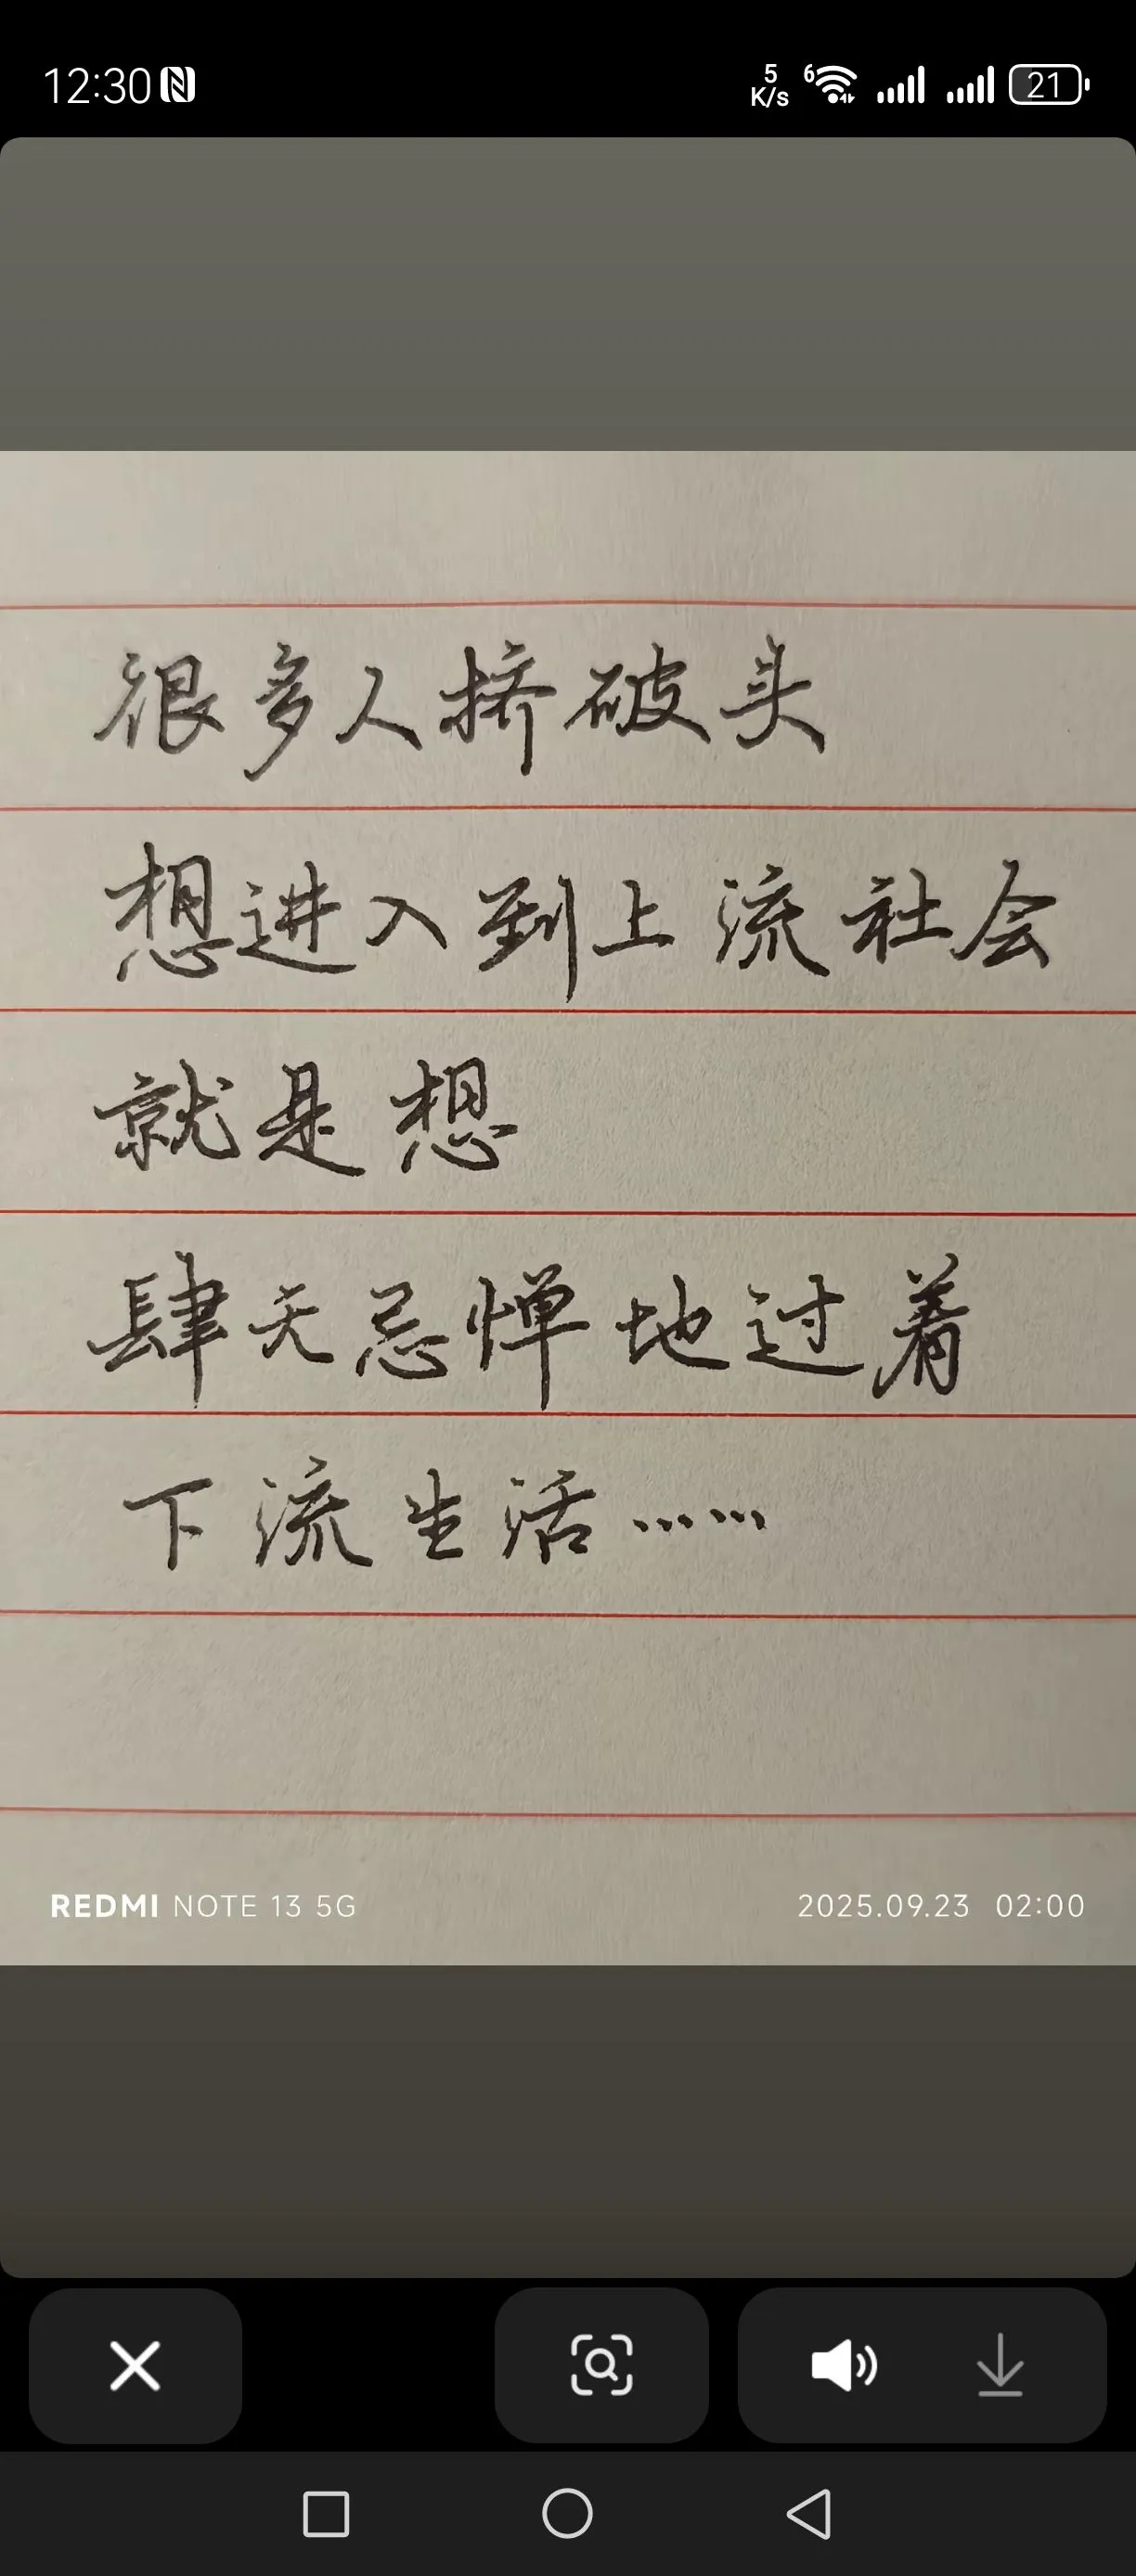 12:30
5 K/s 6 21
很多人挤破头
想进入到上流社会
就是想
肆无忌惮地过着
下流生活……
REDMI NOTE 13 5G 2025.09.23 02:00